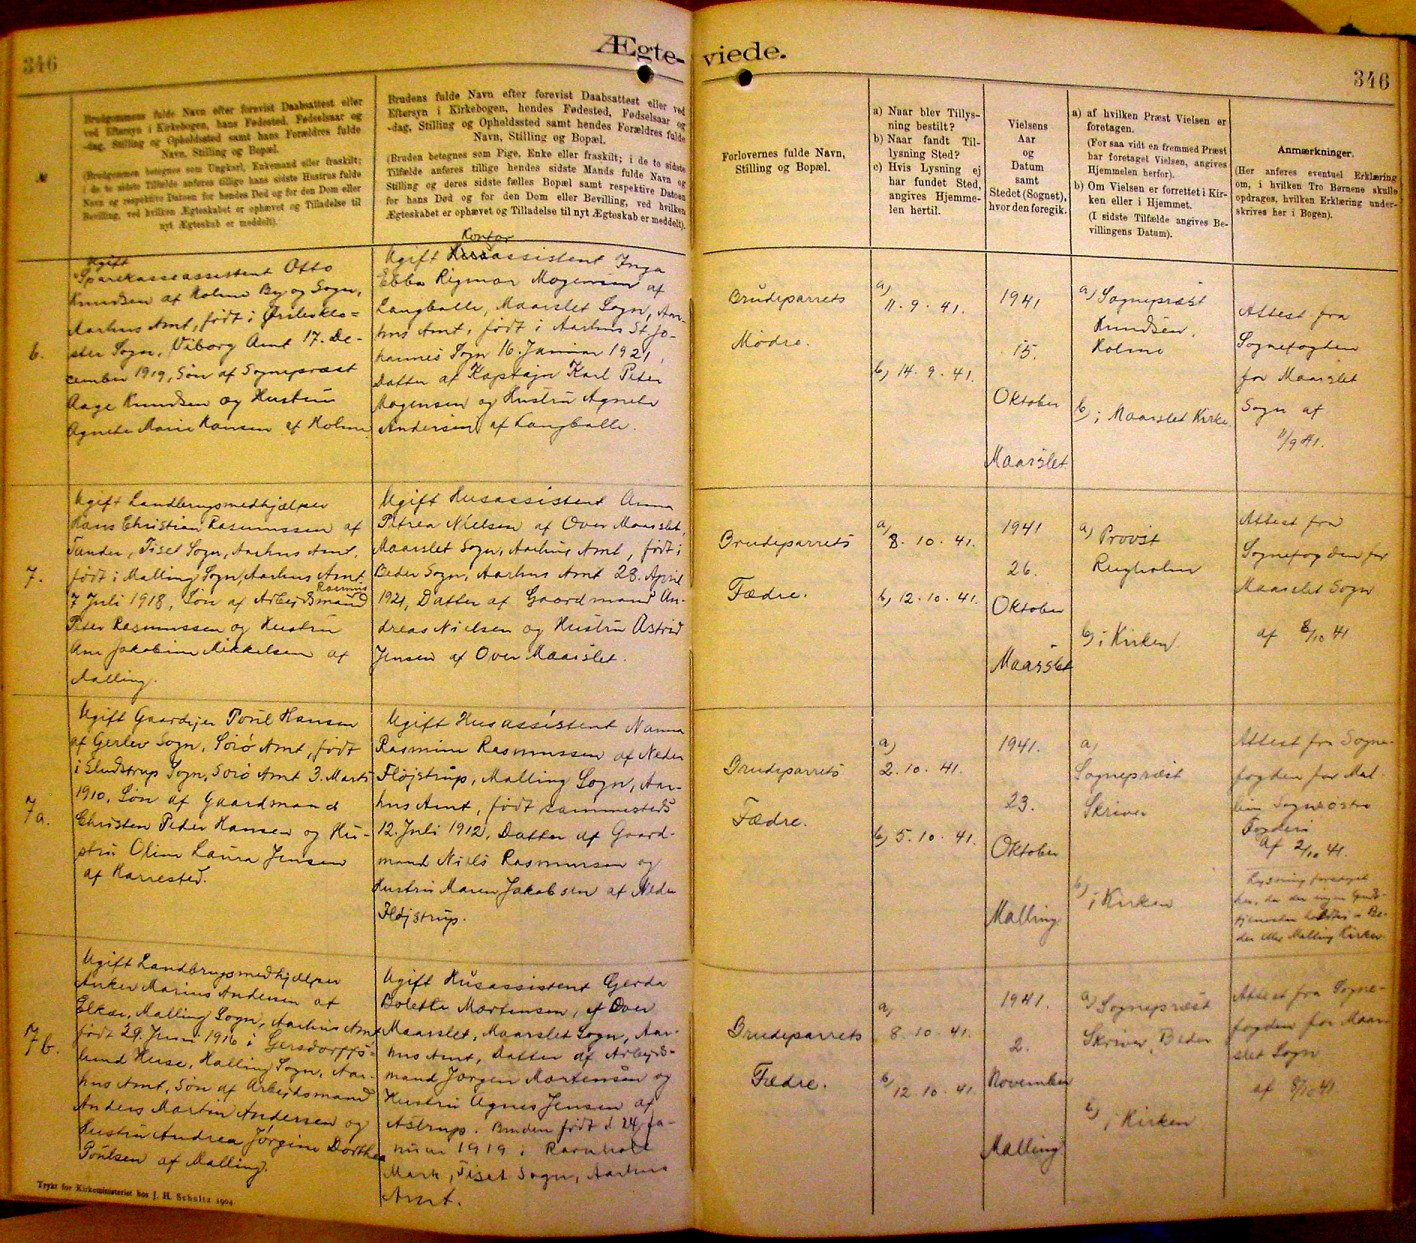 346
Ægte-
viede.
346
№
Brudgommens fulde Navn efter forevist Daabsattest eller
ved Eftersyn i Kirkebogen, hans Fødested, Fødselsaar og
-dag, Stilling og Opholdssted samt hans Forældres fulde
Navn, Stilling og Bopæl.
(Brudgommen betegnes som Ungkarl, Enkemand eller fraskilt;
i de to sidste Tilfælde anføres tillige hans sidste Hustrus fulde
Navn og respektive Datoen for hendes Død og for den Dom eller
Bevilling, ved hvilken Ægteskabet er ophævet og Tilladelse til
nyt Ægteskab er meddelt).
Brudens fulde Navn efter forevist Daabsattest eller ved
Eftersyn i Kirkebogen, hendes Fødested, Fødselsaar og
-dag, Stilling og Opholdssted samt hendes Forældres fulde
Navn, Stilling og Bopæl.
(Bruden betegnes som Pige, Enke eller fraskilt; i de to sidste
Tilfælde anføres tillige hendes sidste Mands fulde Navn og
Stilling og deres sidste fælles Bopæl samt respektive Datoen
for hans Død og for den Dom eller Bevilling, ved hvilken
Ægteskabet er ophævet og Tilladelse til nyt Ægteskab er meddelt).
Forlovernes fulde Navn,
Stilling og Bopæl.
a) Naar blev Tillys-
ning bestilt?
b) Naar fandt Til-
lysning Sted?
c) Hvis Lysning ej
har fundet Sted,
angives Hjemme-
len hertil.
Vielsens
Aar
og
Datum
samt
Stedet (Sognet),
hvor den foregik.
a) af hvilken Præst Vielsen er
foretagen.
(For saa vidt en fremmed Præst
har foretaget Vielsen, angives
Hjemmelen herfor).
b) Om Vielsen er forrettet i Kir-
ken eller i Hjemmet.
(I sidste Tilfælde angives Be-
villingens Datum).
Anmærkninger.
(Her anføres eventuel Erklæring
om, i hvilken Tro Børnene skulle
opdrages, hvilken Erklæring under-
skrives her i Bogen).
6.
Ugift
Sparekasseassistent Otto
Knudsen af Holme By og Sogn,
Aarhus Amt, født i Ørslevklo-
ster Sogn, Viborg Amt 17. De-
cember 1919, Søn af Sognepræst
Aage Knudsen og Hustru
Agnete Marie Hansen af Holme.
Kontor
Ugift assistent Inga
Ebba Rigmor Mogensen af
Langballe, Maarslet Sogn, Aar-
hus Amt, født i Aarhus St. Jo-
hannes Sogn 16. Januar 1921,
Datter af Kaptajn Karl Peter
Mogensen og Hustru Agnete
Andersen af Langballe.
Brudeparrets
Mødre.
a)
11. 9. 41.
b) 14. 9. 41.
1941
15.
Oktober
Maarslet
a) Sognepræst
Knudsen,
Holme
b) i Maarslet Kirke
Attest fra
Sognefogden
for Maarslet
Sogn af
11/9 41.
7.
Ugift Landbrugsmedhjælper
Hans Christian Rasmussen af
Tander, Tiset Sogn, Aarhus Amt,
født i Malling Sogn, Aarhus Amt
Rasmus
7 Juli 1918, Søn af Arbejdsmand
Peter Rasmussen og Hustru
Ane Jakobine Mikkelsen af
Malling.
Ugift Husassistent Anna
Petrea Nielsen af Over Maarslet,
Maarslet Sogn, Aarhus Amt, født i
Beder Sogn, Aarhus Amt 28. April
1921, Datter af Gaardmand An-
dreas Nielsen og Hustru Astrid
Jensen af Over Maarslet.
Brudeparrets
Fædre.
a)
8. 10. 41.
b) 12. 10. 41.
1941
26.
Oktober
Maarslet
a) Provst
Rugholm
b) i Kirken
Attest fra
Sognefogden for
Maarslet Sogn
af 8/10 41.
7a.
Ugift Gaardejer Poul Hansen
af Gerlev Sogn, Sorø Amt, født
i Sludstrup Sogn, Sorø Amt 3. Marts
1910, Søn af Gaardmand
Christen Peder Hansen og Hu-
stru Oline Laura Jensen
af Harrested.
Ugift Husassistent Nanna
Rasmine Rasmussen af Neder
Fløjstrup, Malling Sogn, Aar-
hus Amt, født sammesteds
12. Juli 1912, Datter af Gaard-
mand Niels Rasmussen og
Hustru Maren Jakobsen af Neder
Fløjstrup.
Brudeparrets
Fædre.
a)
2. 10. 41.
b) 5. 10. 41.
1941.
23.
Oktober
Malling
a)
Sognepræst
Skriver
b) i Kirken
Attest fra Sogne-
fogden for Mal-
Fogderi
af 2/10 41.
Lysning foretaget
her, da der ingen Guds-
tjenester holdtes i Be-
der eller Malling Kirker.
7b.
Ugift Landbrugsmedhjælper
Anker Marius Andersen af
Elkær, Malling Sogn, Aarhus Amt
født 29. Juni 1916 i Gersdorffs-
lund Huse, Halling Sogn, Aar-
hus Amt, Søn af Arbejdsmand
Anders Martin Andersen og
Hustru Andrea Jørgine Dorthea
Poulsen af Malling.
Ugift Husassistent Gerda
Bolette Mortensen, af Over
Maarslet, Maarslet Sogn, Aar-
hus Amt, Datter af Arbejds-
mand Jørgen Mortensen og
Hustru Agnes Jensen af
Astrup. Bruden født d. 24 Ja-
nuar 1919 i Ravnholt
Mark, Tiset Sogn, Aarhus
Amt.
Brudeparrets
Fædre.
a)
8. 10. 41.
b)
12. 10. 41.
1941.
2.
November
Malling
a) Sognepræst
Skriver, Beder
b) i Kirken
Attest fra Sogne-
fogden for Maar-
slet Sogn
af 8/10 41.
Trykt for Kirkeministeriet hos J. H. Schultz 1904